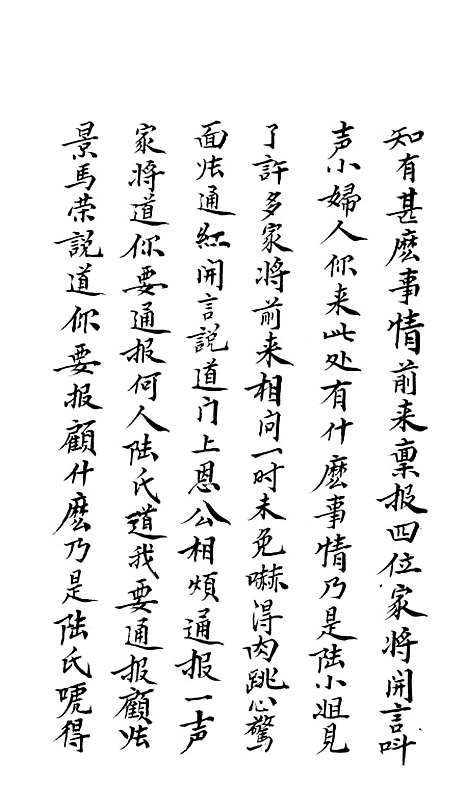 知有甚麽事情前来禀报四位家将開言呌
声小婦人你来此处有什麽事情乃是陆小姐見
了許多家将前来相问一时未免嚇得肉跳心驚
面烘通紅開言說道门上恩公相煩通报一声
家将道你要通报何人陆氏道我要通报顧烘
景馬荣說道你要报顧什麽乃是陆氏唬得